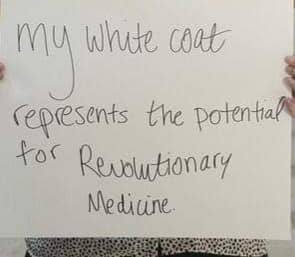 my white coat
represents the potential
for Revolutionary
Medicine.